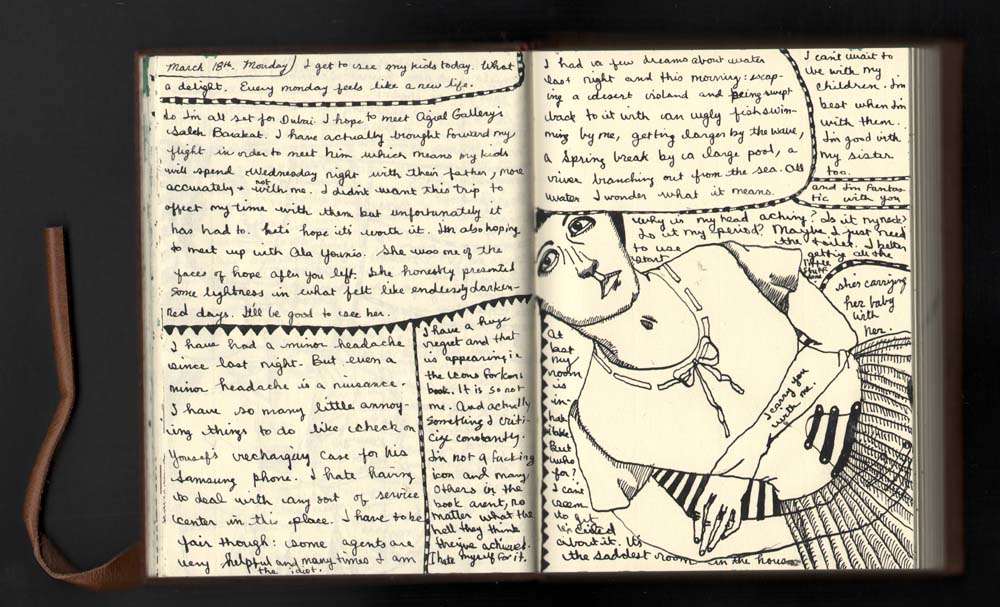 March 18th. Monday) I get to see my kids today. What
a delight. Every monday feels like a new life.
So I'm all set for Dubai. I hope to meet Agial Gallery's
Saleh Barakat. I have actually brought forward my
flight in order to meet him which means my kids
will spend Wednesday night with their father, more
accurately + not with me. I didn't want this trip to
affect my time with them but unfortunately it
has had to. Let's hope it's worth it. I'm also hoping
to meet up with Ala Younis. She was one of the
faces of hope after you left. She honestly presented
some lightness in what felt like endlessly darken-
red days. It'll be good to see her.
I have had a minor headache
since last night. But even a
minor headache is a nuisance.
I have so many little annoy-
ing things to do like check on
Yousef's recharguy case for his
Samsung phone. I hate having
to deal with any sort of service
center in this place. I have to be
fair though: some agents are
very helpful and many times I am
the idiot.
I have a huge
regret and that
is appearing in
the Icons for Icons
book. It is so not
me. And actually
something I criti-
cize constantly.
I'm not a fucking
icon and many
others in the
book arent, no
matter what the
hell they think
they've achieved.
I hate myself for it.
I had a few dreams about water
last night and this morning: escap-
ing a desert island and being swept
back to it with an ugly fish swim-
ming by me, getting larger by the wave,
a Spring break by a large pool, a
river branching out from the sea. All
water I wonder what it means.
I can't wait to
be with my
children. I'm
best when I'm
with them.
I'm good with
my sister
too.
and I'm fantas-
tic with you
Why is my head aching? Is it my neck?
Is it my period? Maybe I just need
to use the toilet. I better
start getting all the
little
stuff
done
she's carrying
her baby
with
her.
I carry you
with me.
At
last
my
room
is
in-
hab
itable
But
who
for?
I can't
seem
to get
excited
about it. It's
the saddest room in the house